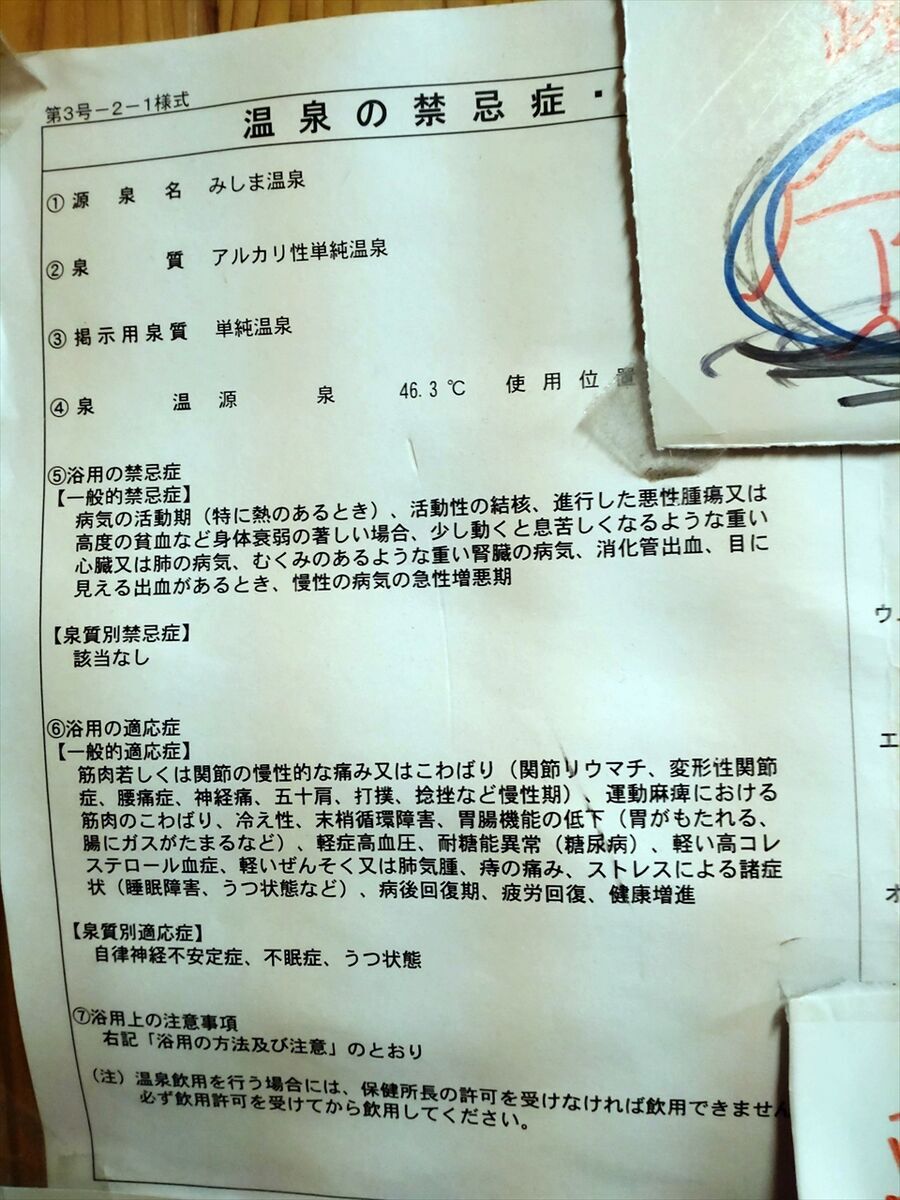 第3号－2－1様式
温泉の禁忌症・
①源泉名 みしま温泉
②泉質 アルカリ性単純温泉
③掲示用泉質 単純温泉
④泉温源泉 46.3℃ 使用位置
⑤浴用の禁忌症
【一般的禁忌症】
病気の活動期（特に熱のあるとき）、活動性の結核、進行した悪性腫瘍又は
高度の貧血など身体衰弱の著しい場合、少し動くと息苦しくなるような重い
心臓又は肺の病気、むくみのあるような重い腎臓の病気、消化管出血、目に
見える出血があるとき、慢性の病気の急性増悪期
【泉質別禁忌症】
該当なし
⑥浴用の適応症
【一般的適応症】
筋肉若しくは関節の慢性的な痛み又はこわばり（関節リウマチ、変形性関節
症、腰痛症、神経痛、五十肩、打撲、捻挫など慢性期）、運動麻痺における
筋肉のこわばり、冷え性、末梢循環障害、胃腸機能の低下（胃がもたれる、
腸にガスがたまるなど）、軽症高血圧、耐糖能異常（糖尿病）、軽い高コレ
ステロール血症、軽いぜんそく又は肺気腫、痔の痛み、ストレスによる諸症
状（睡眠障害、うつ状態など）、病後回復期、疲労回復、健康増進
【泉質別適応症】
自律神経不安定症、不眠症、うつ状態
⑦浴用上の注意事項
右記「浴用の方法及び注意」のとおり
（注）温泉飲用を行う場合には、保健所長の許可を受けなければ飲用できません
必ず飲用許可を受けてから飲用してください。
ウ
エ
オ